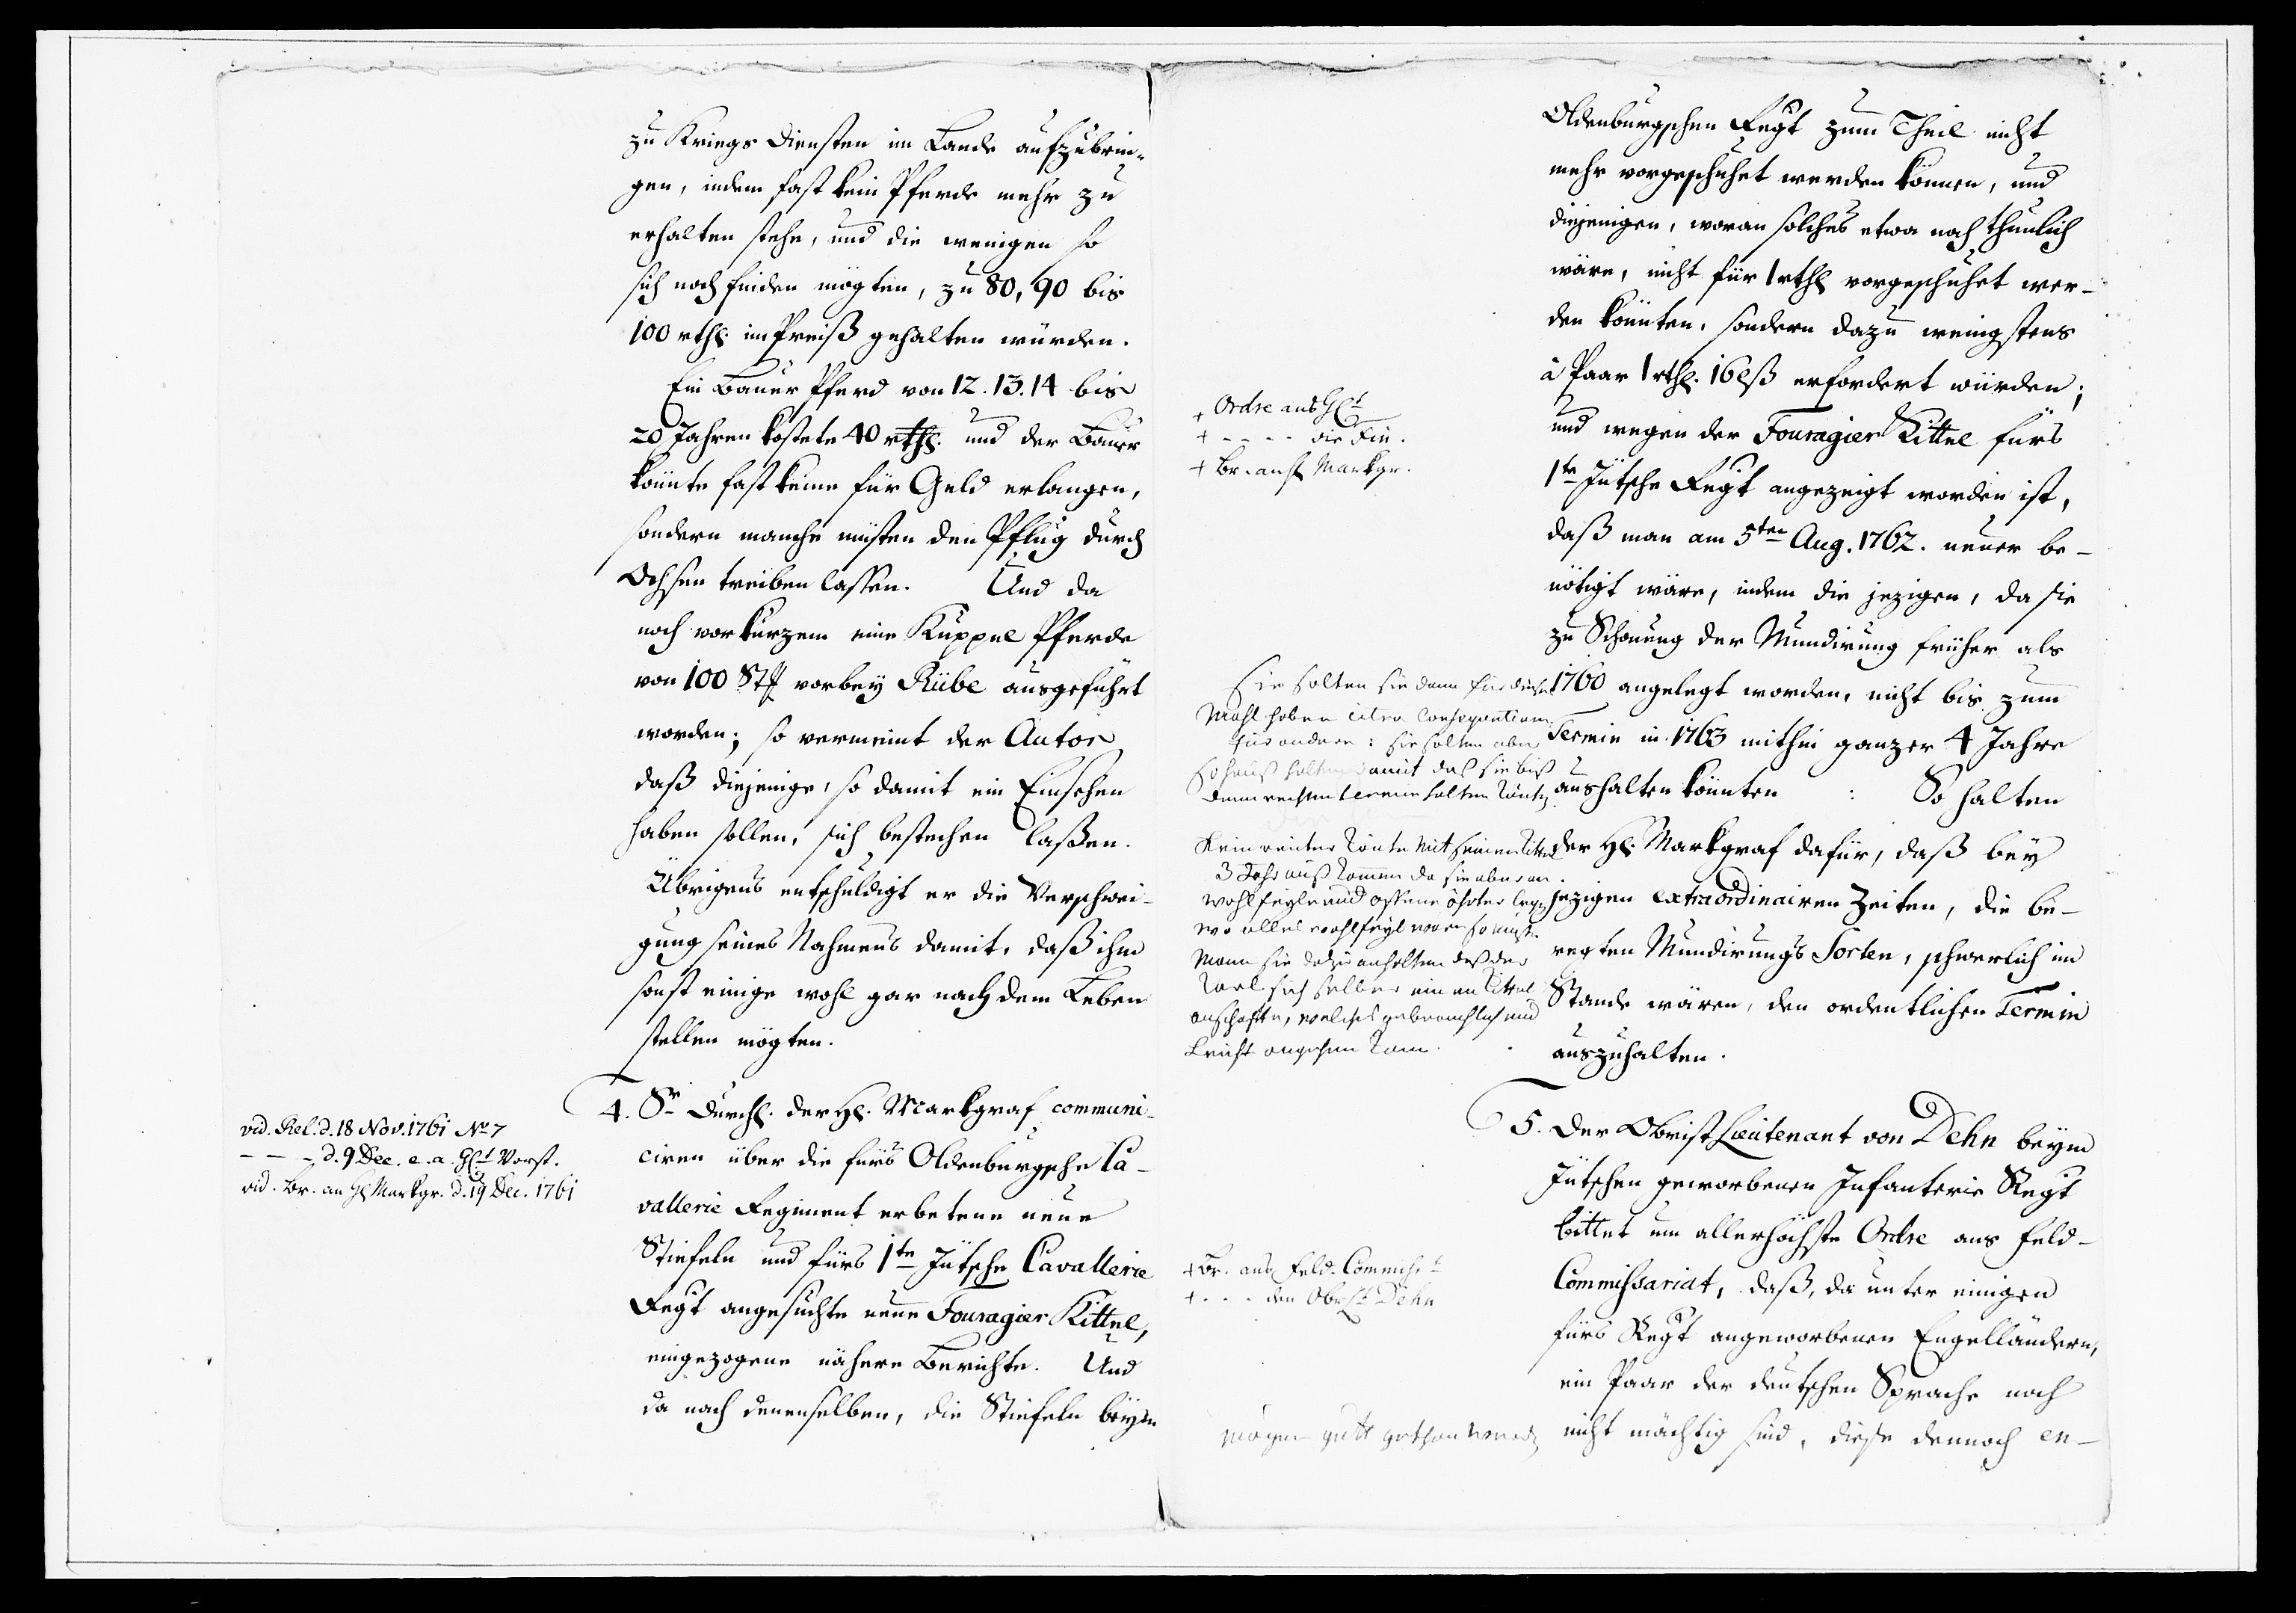 zu Kriegs Diensten im Lande aufzubrin-
gen, indem fast kein Pferde mehr zu
erhalten stehe, und die wenigen so
sich noch finden mögten, zu 80, 90 bis
100 rthl. im Preiß gehalten würden.
Ein Bauer Pferd von 12. 13. 14 bis
20 Jahren kostete 40 rthl. und der Bauer
könnte fast keine für Geld erlangen,
sondern manche müsten den Pflug durch
Ochsen treiben lassen. Und da
noch vor kurzem eine Kuppel Pferde
von 100 Stk vorbey Rübe ausgeführt
worden; so vermeint der Autor
daß diejenige, so damit ein Einsehen
haben sollen, sich bestechen laßen.
Übrigens entschuldigt er die Verschwei-
gung seines Nahmens damit, daß ihm
sonst einige wohl gar nach dem Leben
stellen mögten.
vid. Rel. d. 18 Nov. 1761 No 7
- - - d. 9 Dec. e. a. Vorst.
vid. Br. an H. Markgr. d. 19 Dec. 1761
4. Sr Durchl. der H. Markgraf communi-
ciren über die fürs Oldenburgsche Ca-
vallerie Regiment erbetene neue
Stiefeln und fürs 1te Jütsche Cavallerie
Regt angesuchte neue Fouragier Kittel,
eingezogene nähere Berichte. Und
da nach denenselben, die Stiefeln beym
Oldenburgschen Regt zum Theil nicht
mehr vorgeschuhet werden können, und
diejenigen, woran solches etwa noch thunlich
wäre, nicht für 1 rthl vorgeschuhet wer-
den könnten, sondern dazu wenigstens
à Paar 1 rthl. 16 lß erfordert würden;
und wegen der Fouragier Kittel fürs
1te Jütsche Regt angezeigt worden ist,
daß man am 5ten Aug. 1762. neuer be-
nötigt wäre, indem die jezigen, da sie
zu Schonung der Mundirung früher als
1760 angelegt worden, nicht bis zum
Termin in 1763 mithin ganzer 4 Jahre
aushalten könnten : So halten
der H. Markgraf dafür, daß bey
jezigen extraordinairen Zeiten, die be-
regten Mundirungs Sorten, schwerlich im
Stande wären, den ordentlichen Termin
auszuhalten.
+ Ordre ans
+ - - - - die Fin.
+ Br. an H Markgr.
Sie solten sie dann für dieses
Mahl haben citra Consequentiam
für andere: sie solten aber
so hauß halten damit das sie biß
denn rechten termin halten
Kein reuter könte mit seinen Kittel
3 Jahr auß kommen da sie aber an
wohlfeyle und offene öhrter
wo alles wohlfeyl wäre so müste
Mann sie dazu anhalten daß der
Kerl sich selber einen Kittel
anschaffte, welches gebreuchlich und
Leicht angehen kan.
5. Der Obrist Lieutenant von Dehn beym
Jütschen geworbenen Infanterie Regt
bittet um allerhöchste Ordre ans Feld-
Commissariat, daß, da unter einigen
fürs Regt angeworbenen Engelländern,
ein Paar der deutschen Sprache noch
nicht mächtig sind, diese dennoch en-
+ Br. ans Feld-Commiss.t
+ - - - den Obrstl Dehn
mögen gutt gethan werden